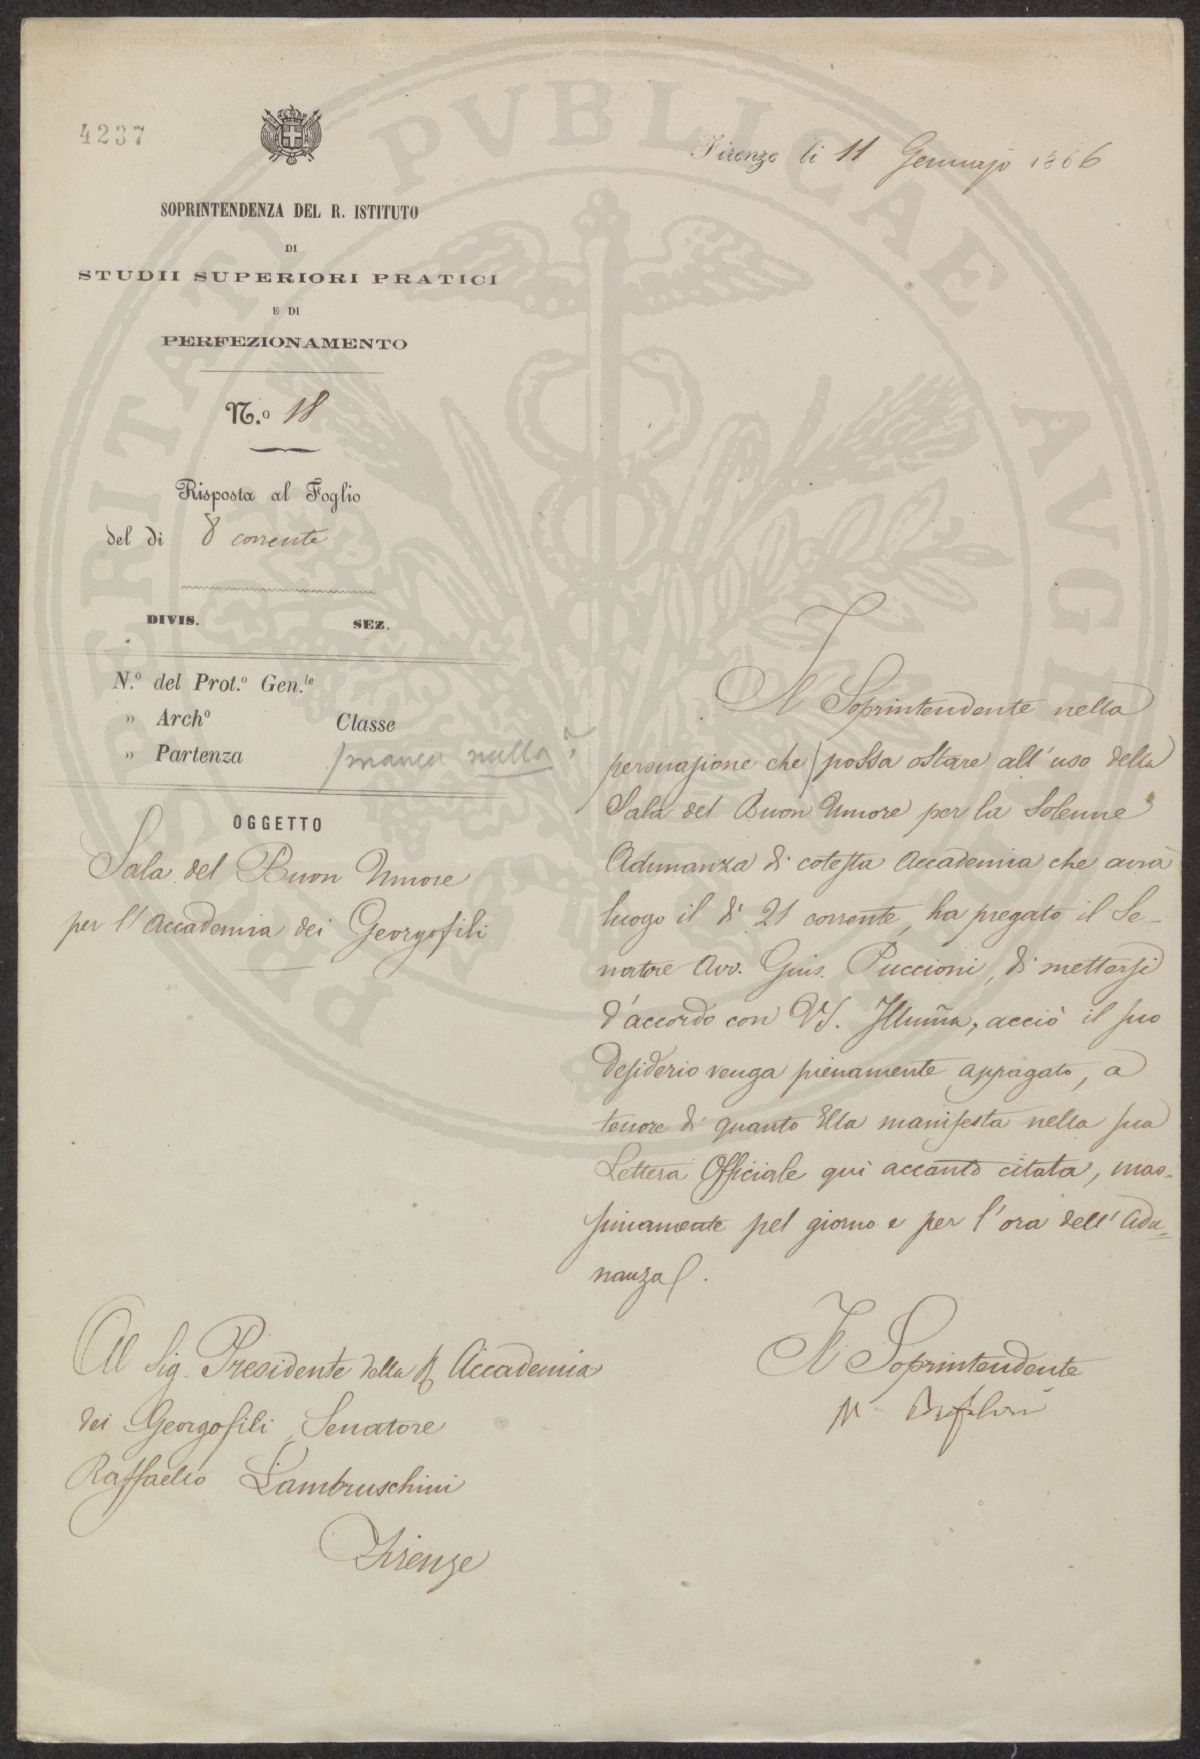 4237
Firenze li 11 Gennajo 1866
SOPRINTENDENZA DEL R. ISTITUTO
DI
STUDII SUPERIORI PRATICI
E DI
PERFEZIONAMENTO
N.º 18
Risposta al Foglio
del dì 8 corrente
DIVIS. SEZ.
N.º del Prot.º Gen.le
» Archº Classe
» Partenza
manca nulla?
OGGETTO
Sala del Buon Umore
per l'Accademia dei Georgofili
Il Soprintendente nella
persuasione che possa ostare all'uso della
Sala del Buon Umore per la Solenne
Adunanza di cotesta Accademia che avrà
luogo il dì 21 corrente, ha pregato il Se-
natore Avv. Gius. Puccioni, di mettersi
d'accordo con VS. Illumã, acciò il suo
desiderio venga pienamente appagato, a
tenore di quanto Ella manifesta nella sua
Lettera Officiale qui accanto citata, mas-
simamente pel giorno e per l'ora dell'Adu=
nanza.
Il Soprintendente
Al Sig. Presidente della R. Accademia
dei Georgofili, Senatore
Raffaello Lambruschini
Firenze
PROSPERITATI PVBLICAE AVGENDAE